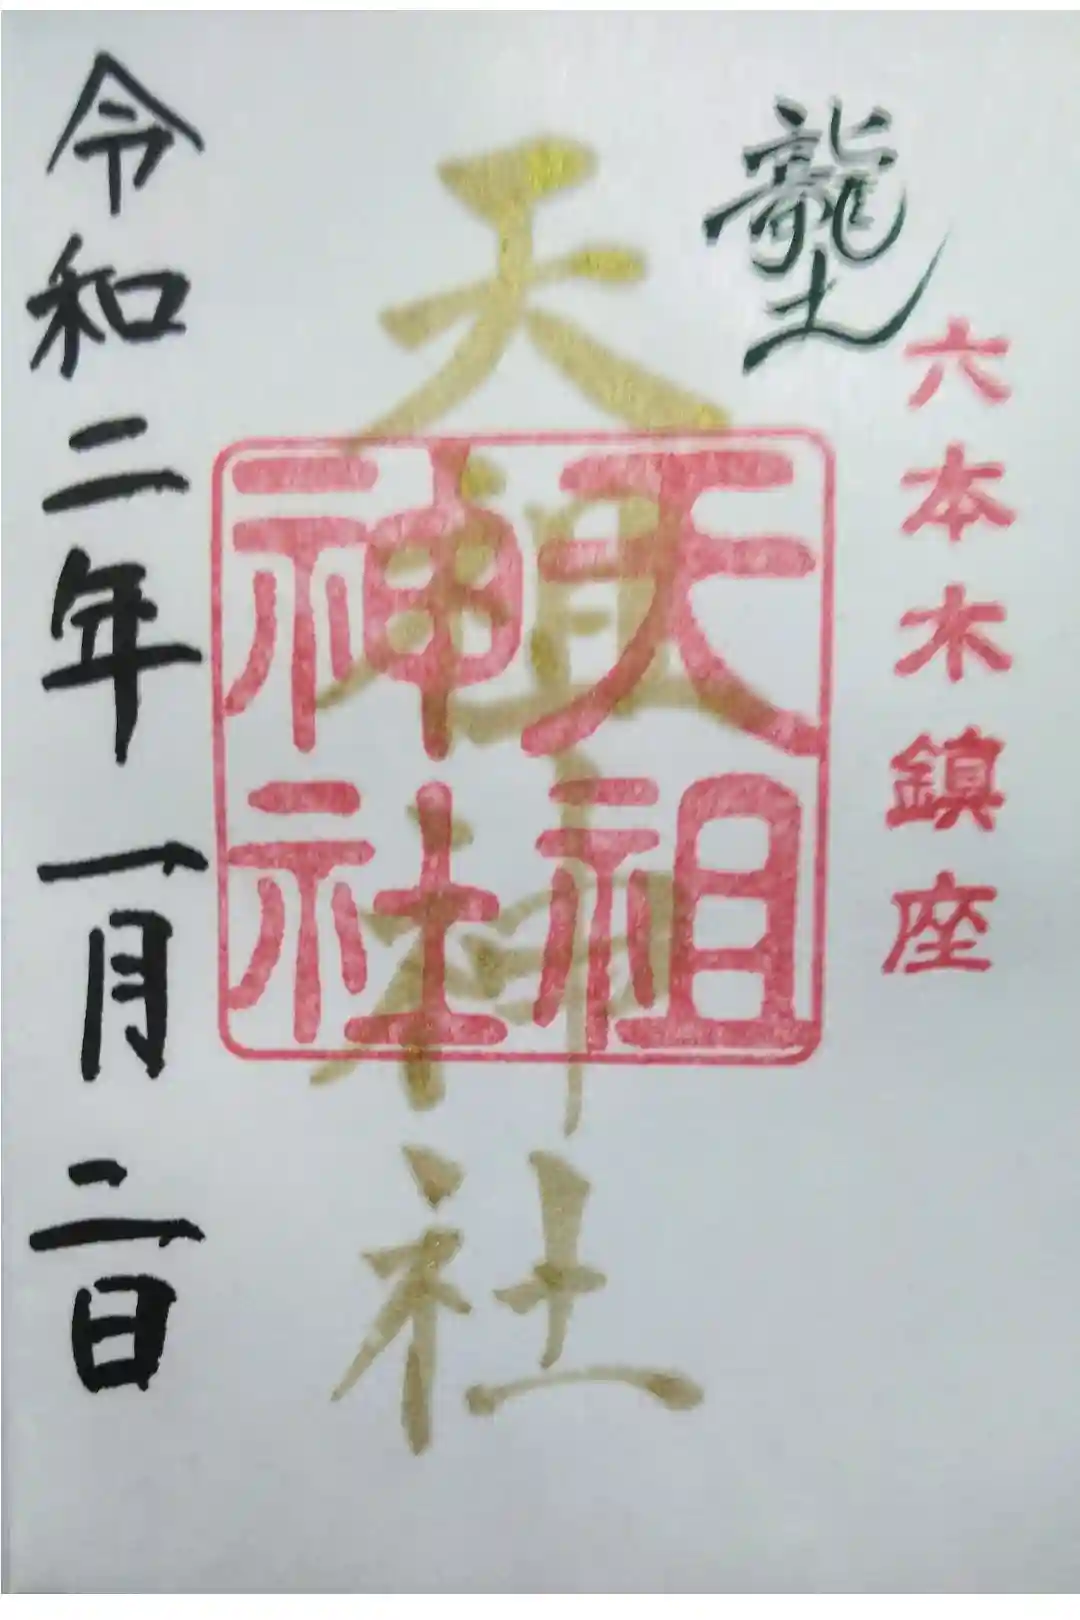 六本木鎮座
龍土
天祖神社
天祖
神社
令和二年一月二日